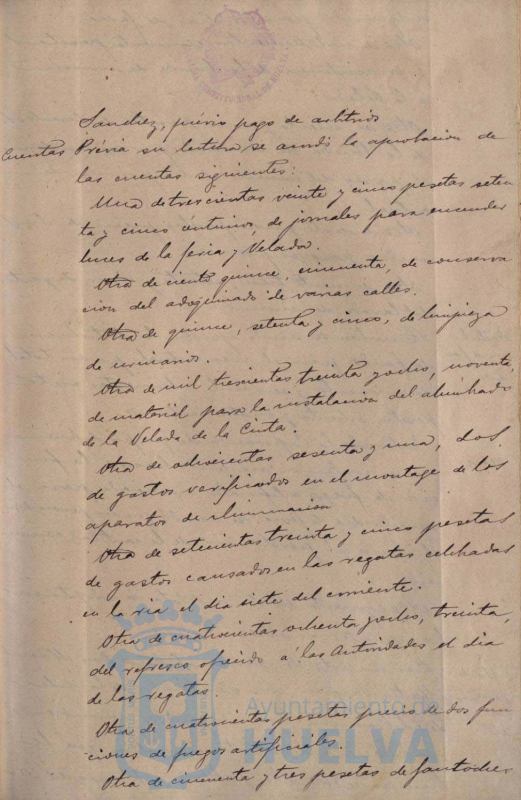 Sanchez, prévio pago de arbitrios
Cuentas Prévia su lectura se acordó la aprobacion de
las cuentas siguientes:
Una de trescientas veinte y cinco pesetas seten
ta y cinco céntimos, de jornales para encender
luces de la feria y Velada.
Otra de ciento quince, cincuenta, de conserva
cion del adoquinado de varias calles.
Otra de quince, setenta y cinco, de limpieza
de urinarios.
Otra de mil trescientas treinta y ocho, noventa,
de material para la instalacion del alumbrado
de la Velada de la Cinta.
Otra de ochocientas sesenta y una, dos
de gastos verificados en el montage de los
aparatos de iluminacion
Otra de setecientas treinta y cinco pesetas
de gastos causados en las regatas celebradas
en la ria el dia siete del corriente.
Otra de cuatrocientas ochenta y ocho, treinta,
del refresco ofrecido a las Autoridades el dia
de las regatas.
Otra de cuatrocientas pesetas precio de dos fun
ciones de fuegos artificiales.
Otra de cincuenta y tres pesetas de
Ayuntamiento de
HUELVA